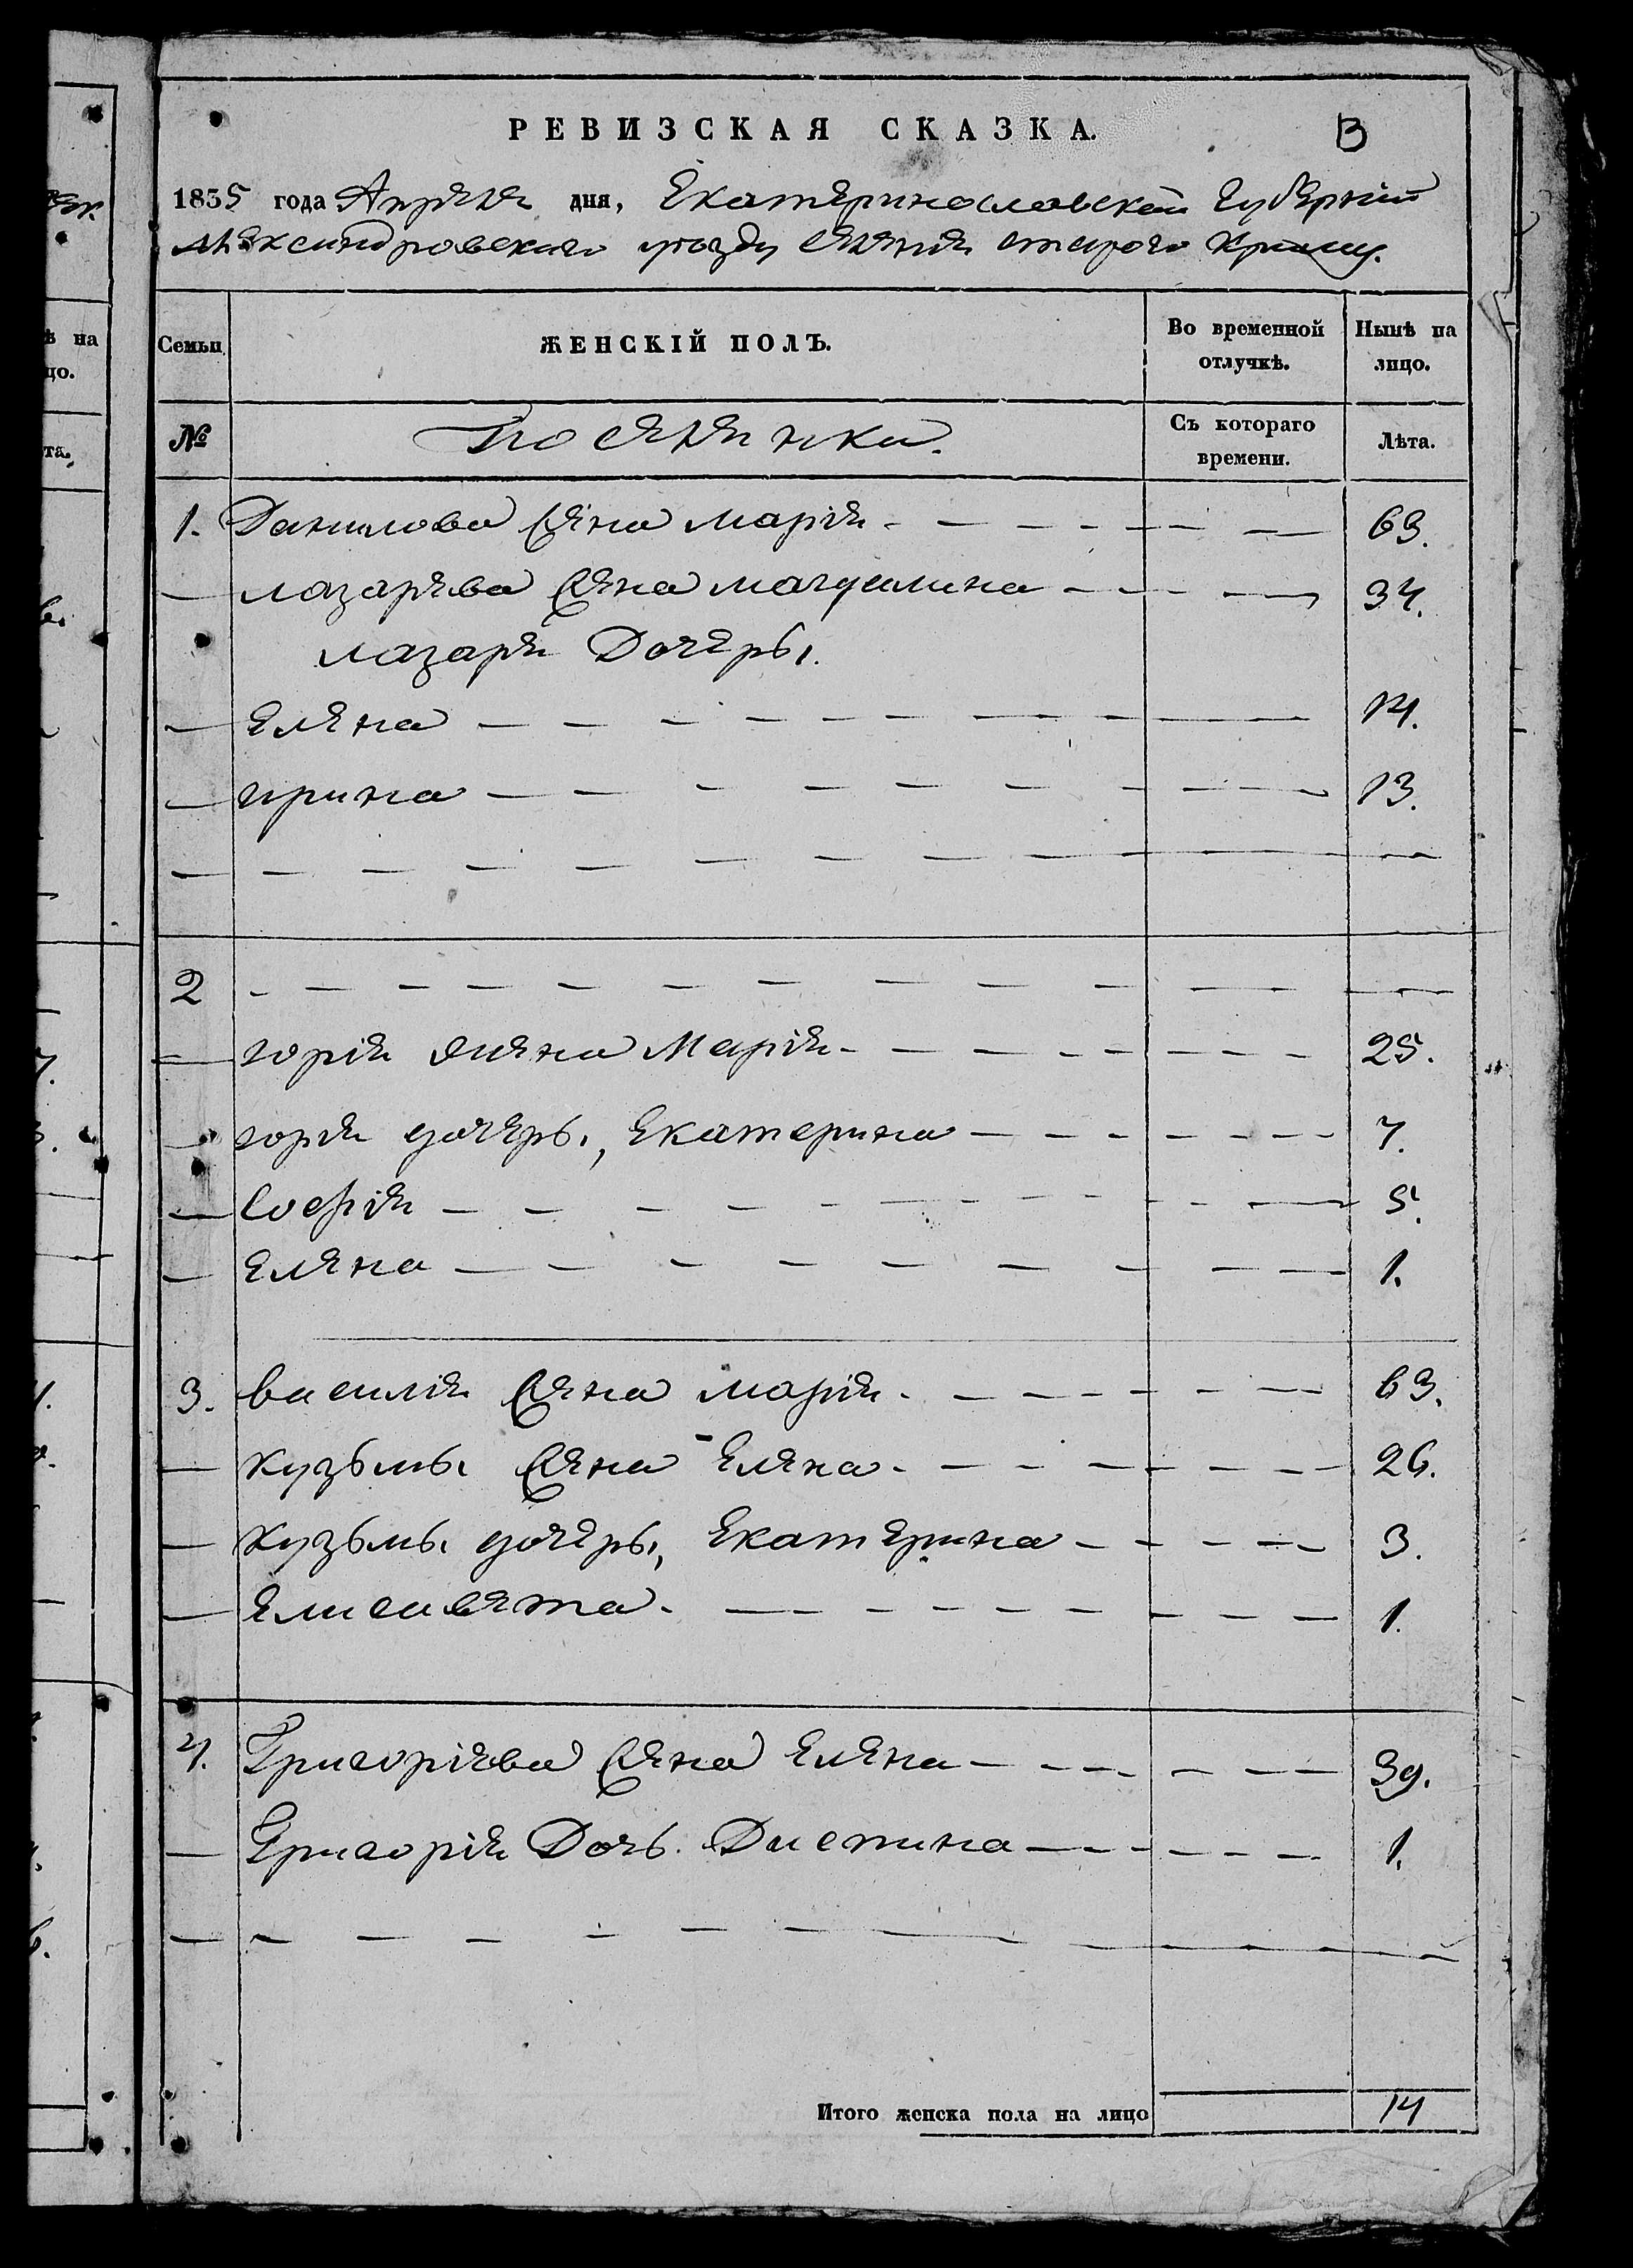 РЕВИЗСКАЯ СКАЗКА.
1835 года Апреля дня, Екатеринославской Губернии
Александровского уезду селения старого Крыму.
Семьи
ЖЕНСКІЙ ПОЛЪ.
Во временной отлучкѣ.
Нынѣ на лицо.
№
Поселянки.
Съ котораго времени.
Лѣта.
1. Данилова Жена Марія 63.
Лазарева Жена Магдалина 34.
Лазаря Дочеры.
Елена 14.
Ирина 13.
2
Юрія жена Марія 25.
Юрія дочеры, Екатерина 7.
Софія 5.
Елена 1.
3. Василія Жена Марія 63.
Кузьмы Жена Елена 26.
Кузьмы дочеры, Екатерина 3.
Елисавета 1.
4. Григоріева Жена Елена 39.
Григорія Дочь 1.
Итого женска пола на лицо 14